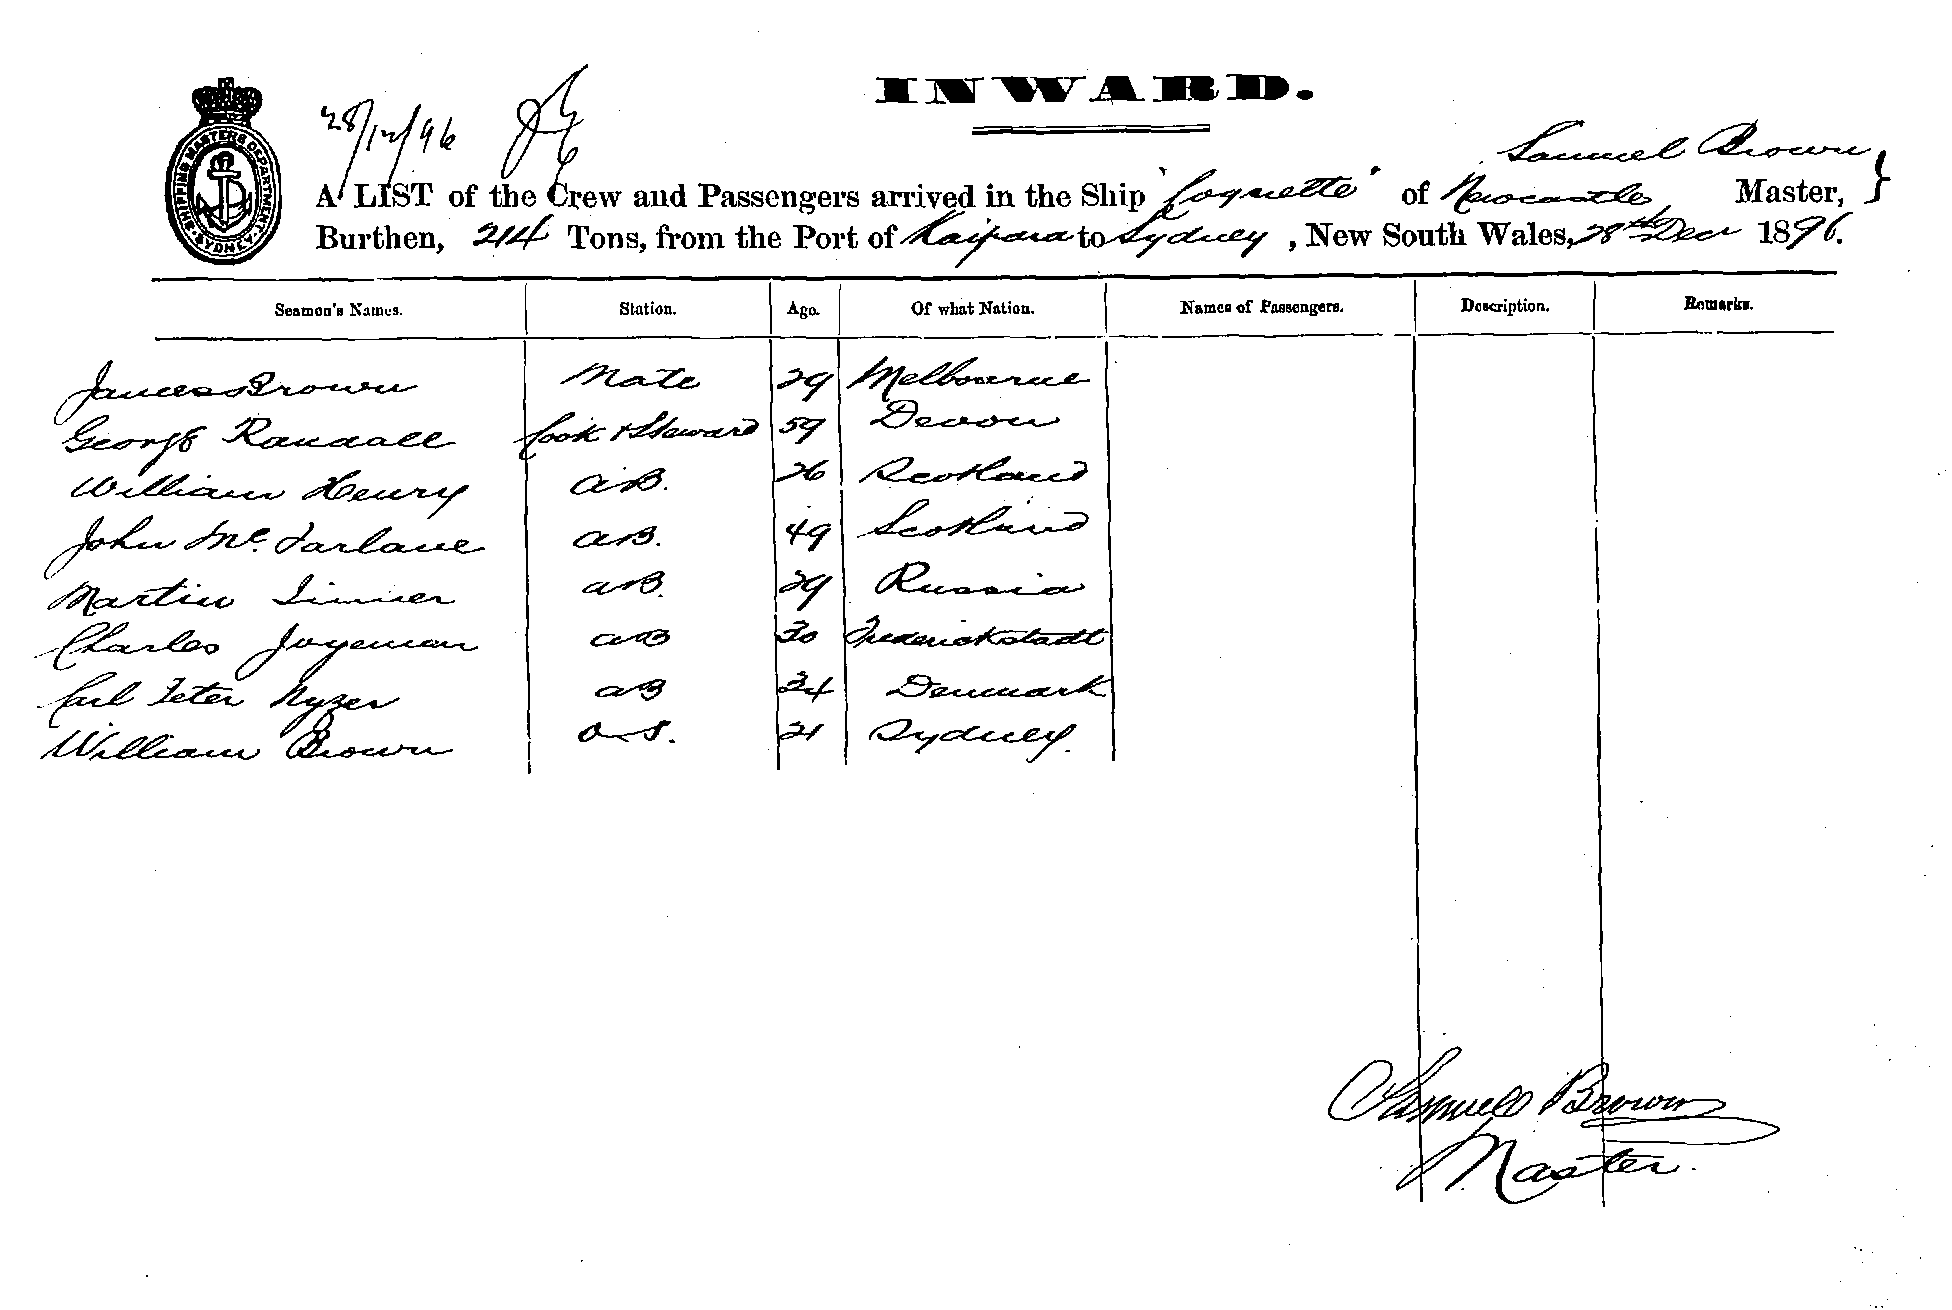 INWARD.
28/12/96
SHIPPING MASTERS DEPARTMENT SYDNEY
Samuel Brown
A LIST of the Crew and Passengers arrived in the Ship "Coquette" of Newcastle, Master,
Burthen, 214 Tons, from the Port of Kaipara to Sydney, New South Wales, 28th Decr 1896.
Seamen's Names. Station. Age. Of what Nation. Names of Passengers. Description. Remarks.
James Brown Mate 29 Melbourne
George Randall Cook & Steward 59 Devon
William Henry A.B. 26 Scotland
John Mc.Farlane A.B. 49 Scotland
Martin A.B. 29 Russia
Charles Jogeman A.B 30 Frederickstadt
Carl Peter Nyzer A.B 34 Denmark
William Brown O.S. 21 Sydney.
Samuel Brown
Master.